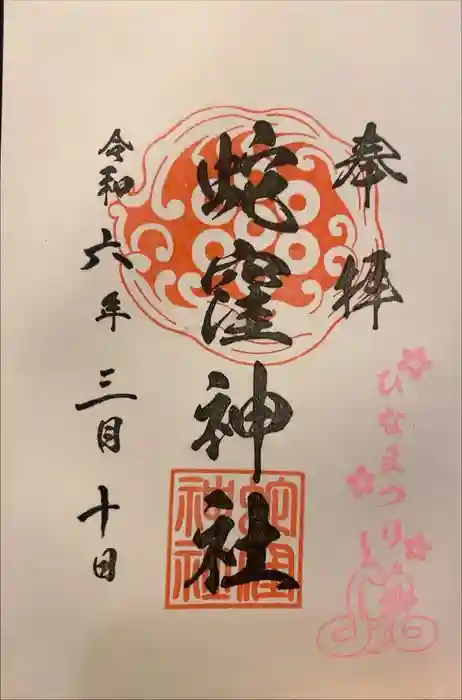 奉拝
蛇窪神社
令和六年三月十日
ひなまつり
蛇窪
神社